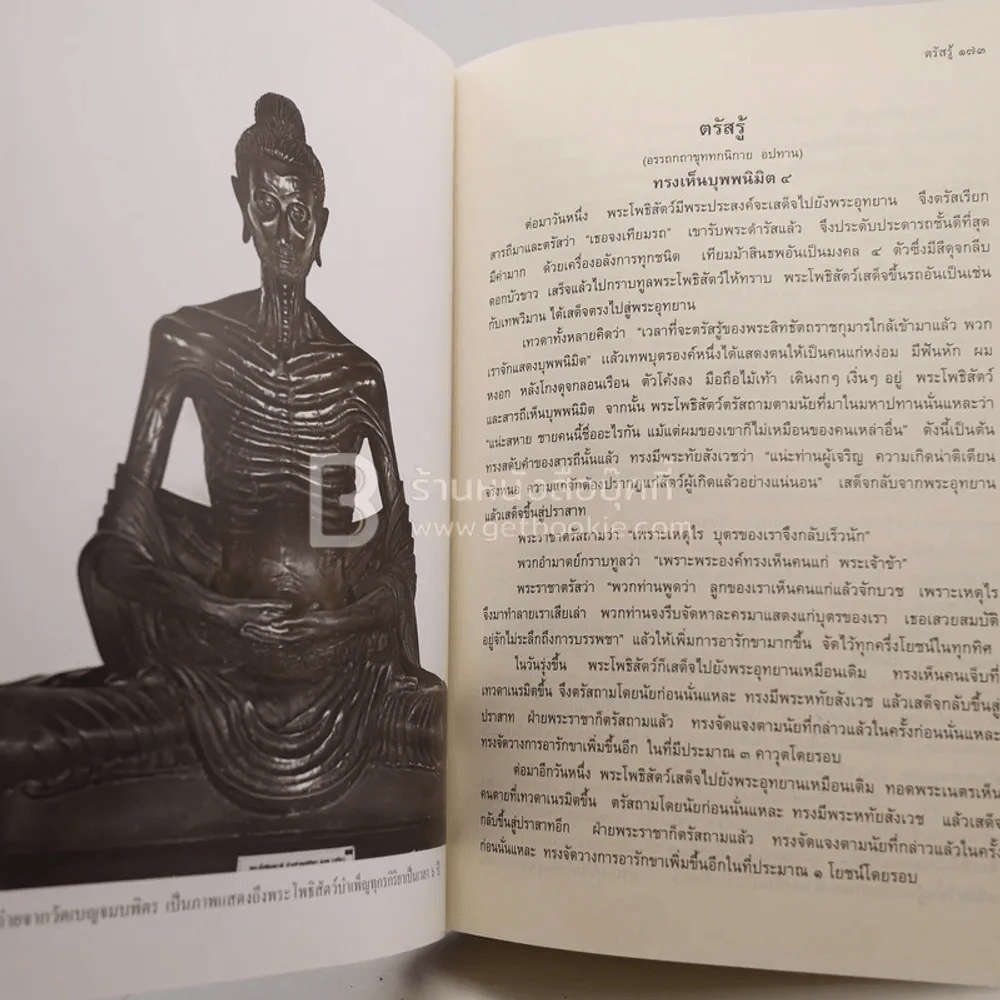 ถ่ายจากวัดเบญจมบพิตร เป็นภาพแสดงถึงพระโพธิสัตว์บำเพ็ญทุกรกิริยาเป็นเวลา ๖ ปี
ร้านหนังสือบุ๊คกี้
www.getbookie.com
ตรัสรู้ ๑๗๓
ตรัสรู้
(อรรถกถาขุททกนิกาย อปทาน)
ทรงเห็นบุพพนิมิต ๔
ต่อมาวันหนึ่ง พระโพธิสัตว์มีพระประสงค์จะเสด็จไปยังพระอุทยาน จึงตรัสเรียก
สารถีมาและตรัสว่า “เธอจงเทียมรถ” เขารับพระดำรัสแล้ว จึงประดับประดารถชั้นดีที่สุด
มีค่ามาก ด้วยเครื่องอลังการทุกชนิด เทียมม้าสินธพอันเป็นมงคล ๔ ตัวซึ่งมีสีดุจกลีบ
ดอกบัวขาว เสร็จแล้วไปกราบทูลพระโพธิสัตว์ให้ทราบ พระโพธิสัตว์เสด็จขึ้นรถอันเป็นเช่น
กับเทพวิมาน ได้เสด็จตรงไปสู่พระอุทยาน
เทวดาทั้งหลายคิดว่า “เวลาที่จะตรัสรู้ของพระสิทธัตถราชกุมารใกล้เข้ามาแล้ว พวก
เราจักแสดงบุพพนิมิต” แล้วเทพบุตรองค์หนึ่งได้แสดงตนให้เป็นคนแก่หง่อม มีฟันหัก ผม
หงอก หลังโกงดุจกลอนเรือน ตัวโค้งลง มือถือไม้เท้า เดินงกๆ เงิ่นๆ อยู่ พระโพธิสัตว์
และสารถีเห็นบุพพนิมิต จากนั้น พระโพธิสัตว์ตรัสถามตามนัยที่มาในมหาปทานนั่นแหละว่า
“แน่ะสหาย ชายคนนี้ชื่ออะไรกัน แม้แต่ผมของเขาก็ไม่เหมือนของคนเหล่าอื่น” ดังนี้เป็นต้น
ทรงสดับคำของสารถีนั้นแล้ว ทรงมีพระทัยสังเวชว่า “แน่ะท่านผู้เจริญ ความเกิดน่าติเตียน
จริงหนอ ความแก่จักต้องปรากฏแก่สัตว์ผู้เกิดแล้วอย่างแน่นอน” เสด็จกลับจากพระอุทยาน
แล้วเสด็จขึ้นสู่ปราสาท
พระราชาตรัสถามว่า “เพราะเหตุไร บุตรของเราจึงกลับเร็วนัก”
พวกอำมาตย์กราบทูลว่า “เพราะพระองค์ทรงเห็นคนแก่ พระเจ้าข้า”
พระราชาตรัสว่า “พวกท่านพูดว่า ลูกของเราเห็นคนแก่แล้วจักบวช เพราะเหตุไร
จึงมาทำลายเราเสียเล่า พวกท่านจงรีบจัดหาละครมาแสดงแก่บุตรของเรา เธอเสวยสมบัติ
อยู่จักไม่ระลึกถึงการบรรพชา” แล้วให้เพิ่มการอารักขามากขึ้น จัดไว้ทุกครึ่งโยชน์ในทุกทิศ
ในวันรุ่งขึ้น พระโพธิสัตว์ก็เสด็จไปยังพระอุทยานเหมือนเดิม ทรงเห็นคนเจ็บที่
เทวดาเนรมิตขึ้น จึงตรัสถามโดยนัยก่อนนั่นแหละ ทรงมีพระหทัยสังเวช แล้วเสด็จกลับขึ้นสู่
ปราสาท ฝ่ายพระราชาก็ตรัสถามแล้ว ทรงจัดแจงตามนัยที่กล่าวแล้วในครั้งก่อนนั่นแหละ
ทรงจัดวางการอารักขาเพิ่มขึ้นอีก ในที่มีประมาณ ๓ คาวุตโดยรอบ
ต่อมาอีกวันหนึ่ง พระโพธิสัตว์เสด็จไปยังพระอุทยานเหมือนเดิม ทอดพระเนตรเห็น
คนตายที่เทวดาเนรมิตขึ้น ตรัสถามโดยนัยก่อนนั่นแหละ ทรงมีพระหทัยสังเวช แล้วเสด็จ
กลับขึ้นสู่ปราสาทอีก ฝ่ายพระราชาก็ตรัสถามแล้ว ทรงจัดแจงตามนัยที่กล่าวแล้วในครั้ง
ก่อนนั่นแหละ ทรงจัดวางการอารักขาเพิ่มขึ้นอีกในที่ประมาณ ๑ โยชน์โดยรอบ